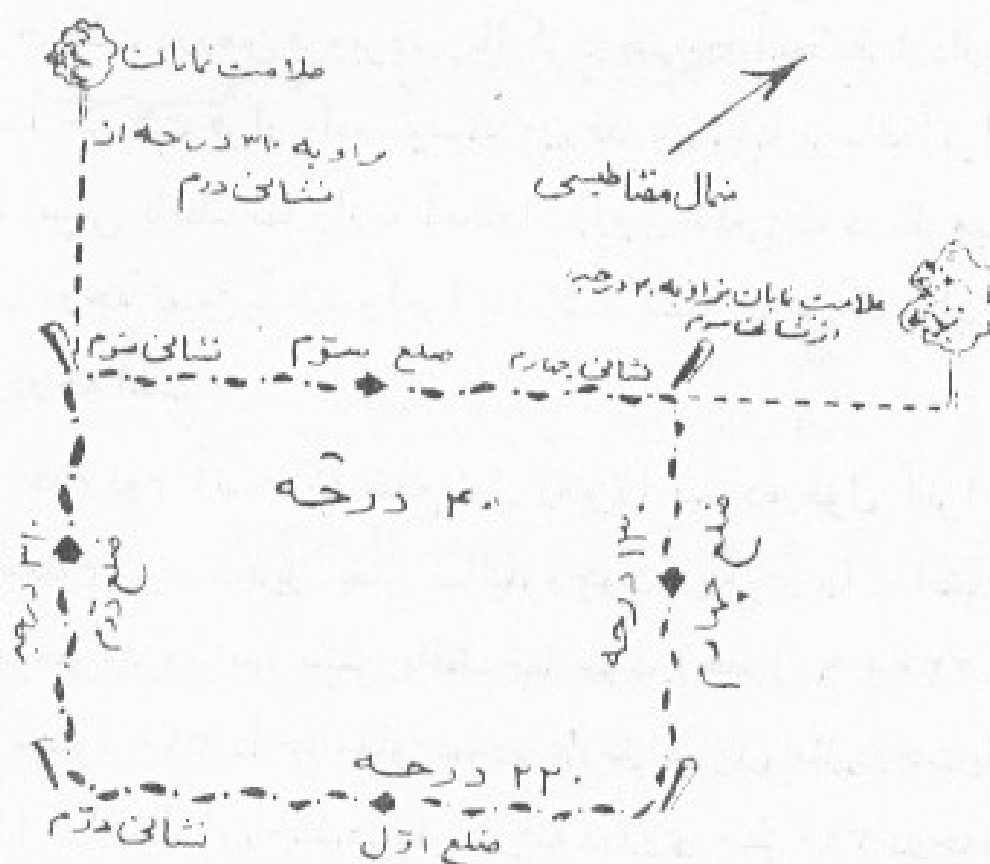 علامت نابان
زاویه ۳۱۰ درجه از
نشانی دوم
شمال مغناطیسی
علامت نابان بزاویه ۴۰ درجه
از نشانی سوم
نشانی سوم
ضلع سوّم
نشانی چهارم
۴۰ درجه
۳۱۰ درجه
ضلع دوّم
۱۳۰ درجه
ضلع چهارم
۲۲۰ درجه
نشانی دوّم
ضلع اوّل